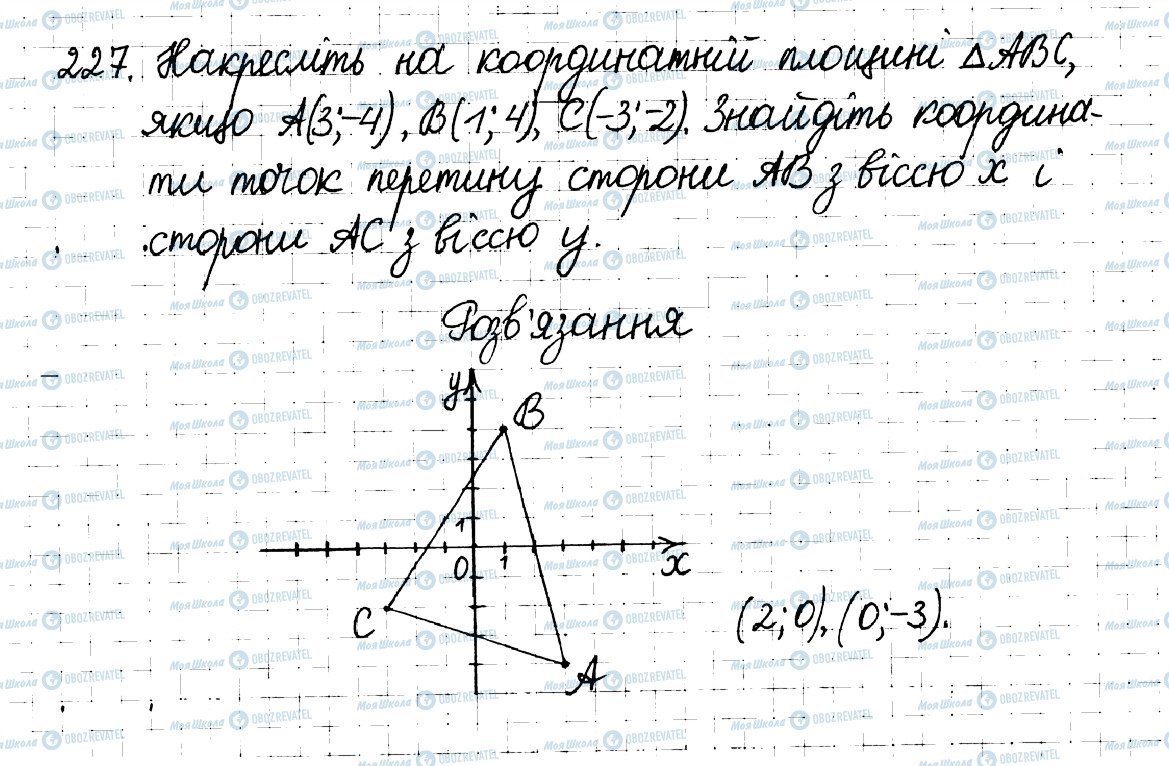 227. Накресліть на координатній площині △ABC,
якщо A(3;-4), B(1;4), C(-3;-2). Знайдіть координа-
ти точок перетину сторони AB з віссю x і
сторони AC з віссю y.
Розв'язання
y
B
1
0 1 x
C
(2;0), (0;-3).
A
Моя Школа OBOZREVATEL